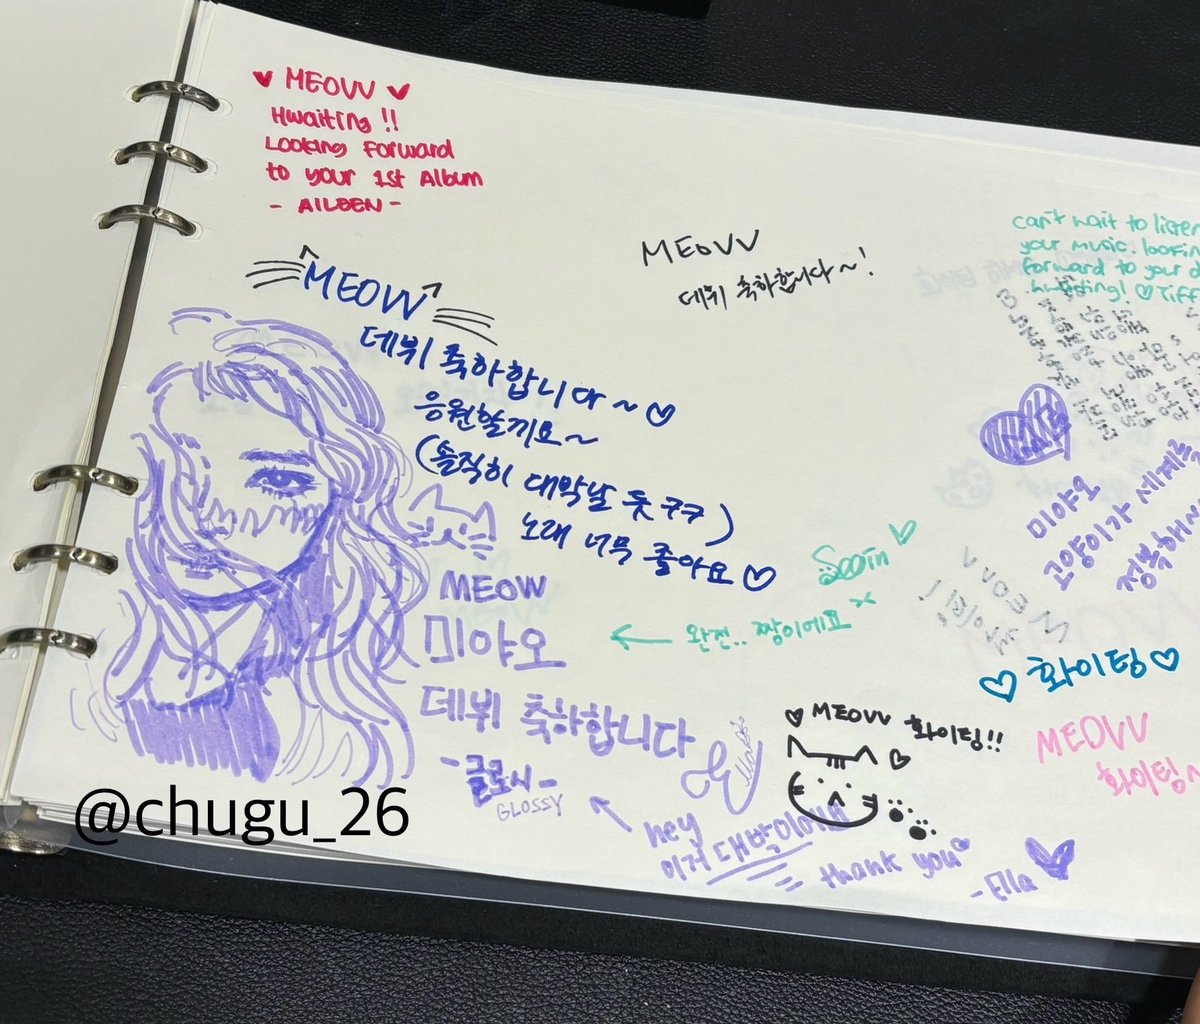 ♥ MEOVV ♥
Hwaiting!!
Looking Forward
to your 1st Album
- AILEEN -
MEOVV
데뷔 축하합니다~!
can't wait to listen
your music. looking
forward to your d
hwaiting! ♡ Tiff
MEOVV
데뷔 축하합니다~♡
응원할끼요~
(솔직히 대박날 듯 ㅋㅋ)
노래 너무 좋아요♡
MEOW
미야오
데뷔 축하합니다
-글로시-
GLOSSY
Sooin ♡
← 완전.. 짱이에요
미야오
고양이가 세계를
정복해
MEOVV
♡ 화이팅 ♡
♡ MEOVV 화이팅!!
MEOVV
화이팅~
hey
이거 대박이야
thank you
-Ella
@chugu_26